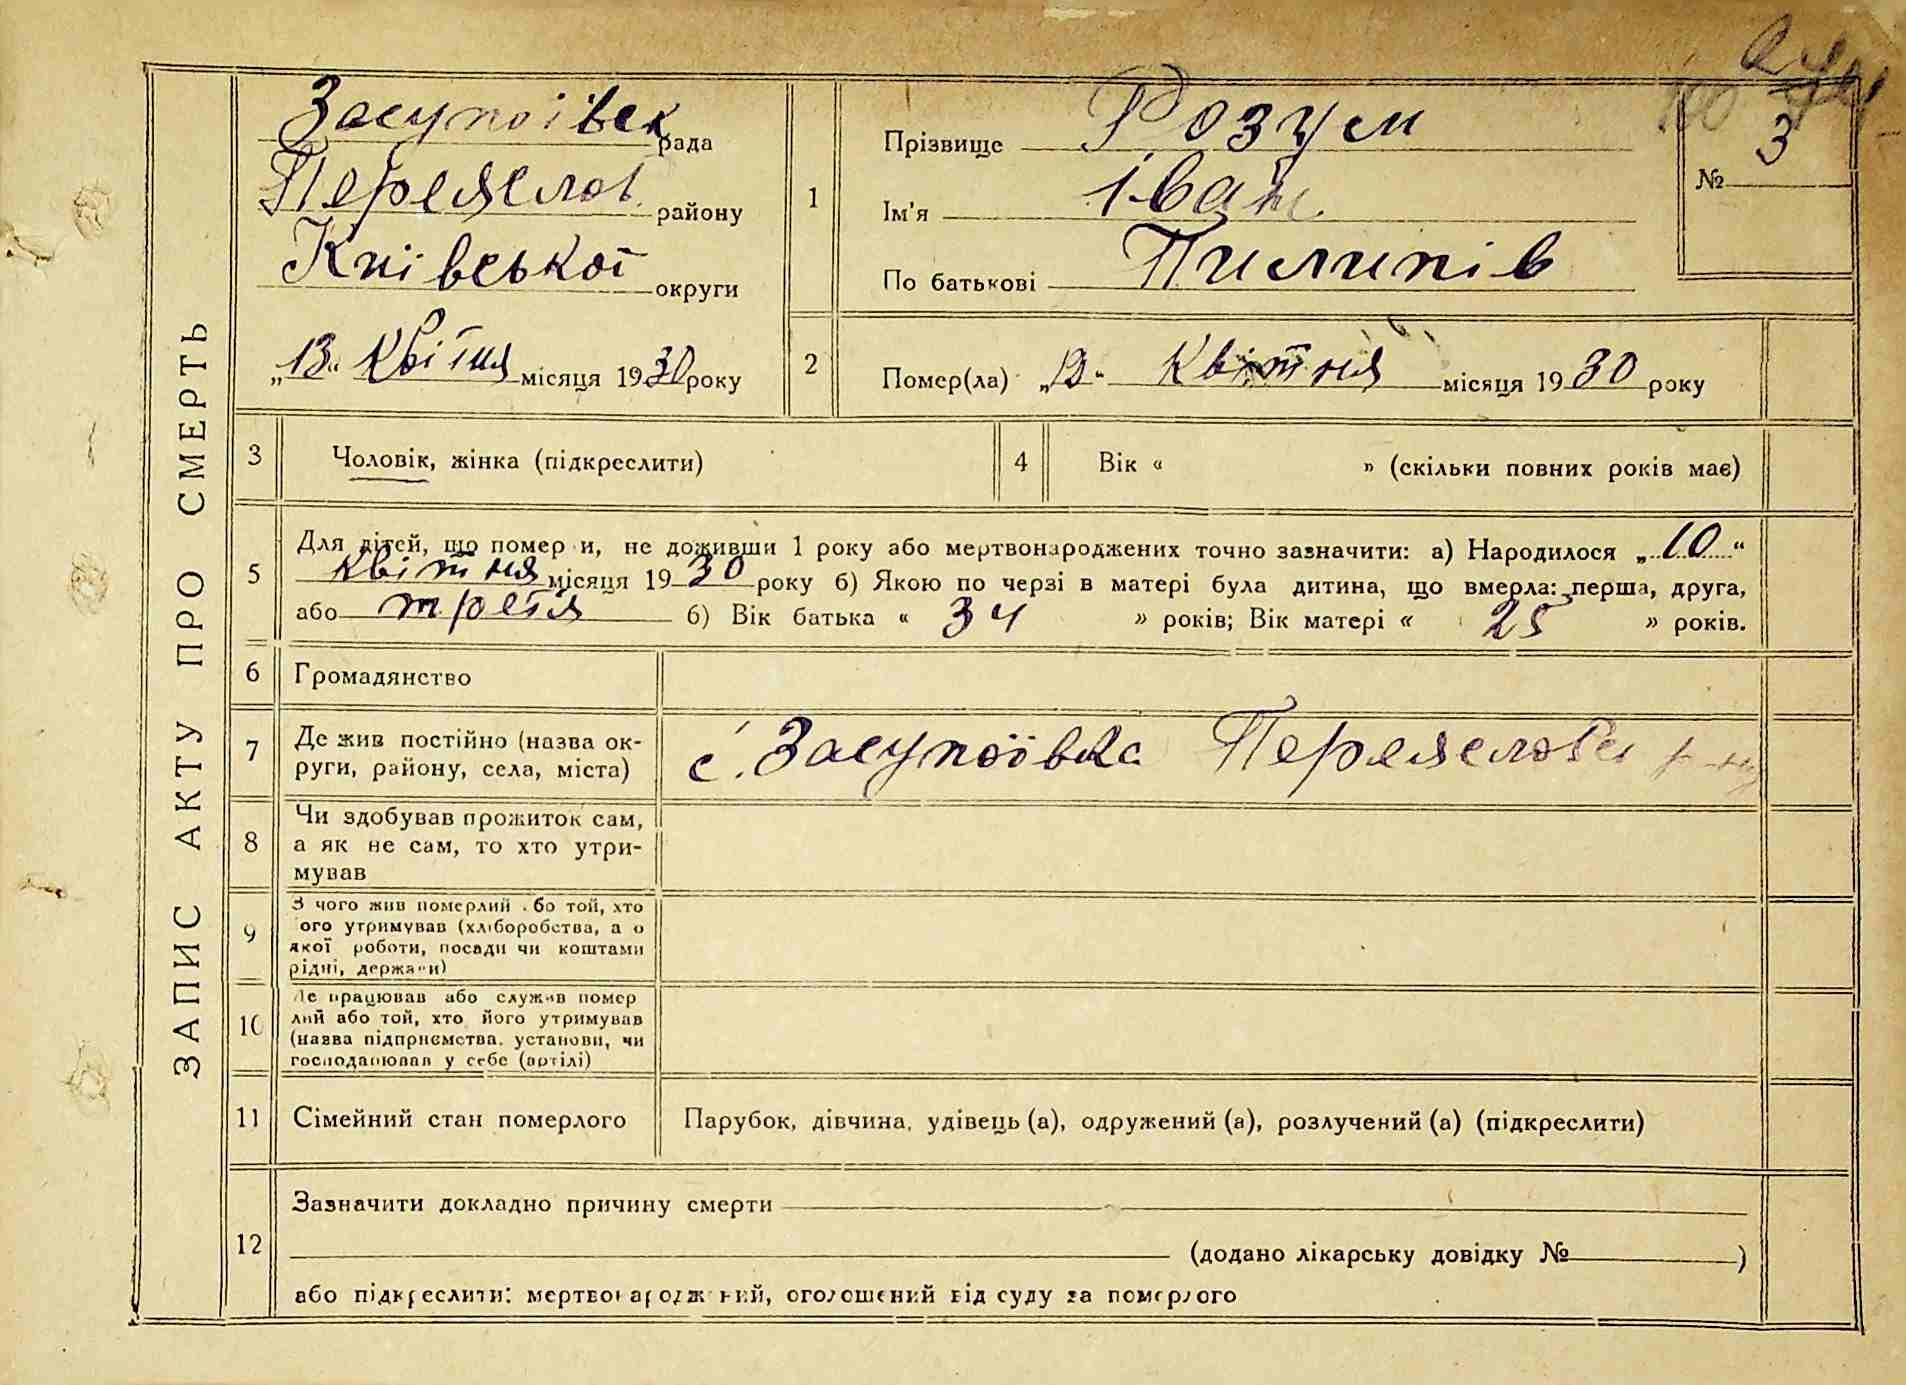 ЗАПИС АКТУ ПРО СМЕРТЬ
Засупоївск рада
Переяслов. району
Київської округи
„13“ Квітня місяця 1930 року
№ 3
1 Прізвище Розум
Ім'я Іван
По батькові Пилипів
2 Помер(ла) „13“ Квітня місяця 1930 року
3 Чоловік, жінка (підкреслити)
4 Вік « » (скільки повних років має)
5 Для дітей, що померли, не доживши 1 року або мертвонароджених точно зазначити: а) Народилося „10“
квітня місяця 1930 року б) Якою по черзі в матері була дитина, що вмерла: перша, друга,
або третя б) Вік батька « 34 » років; Вік матері « 25 » років.
6 Громадянство
7 Де жив постійно (назва ок-
руги, району, села, міста)
с. Засупоївка Переяслов р-ну
8 Чи здобував прожиток сам,
а як не сам, то хто утри-
мував
9 З чого жив померлий або той, хто
його утримував (хліборобства, а о
якої роботи, посади чи коштами
рідні, держави)
10 Де працював або служив помер
лий або той, хто його утримував
(назва підприємства, установи, чи
господарював у себе (артілі)
11 Сімейний стан померлого
Парубок, дівчина, удівець (а), одружений (а), розлучений (а) (підкреслити)
12 Зазначити докладно причину смерти
(додано лікарську довідку № )
або підкреслити: мертвонароджений, оголошений від суду за померлого